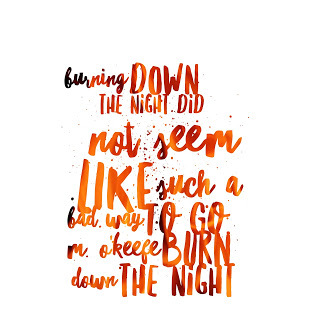 burning DOWN
THE NIGHT DID
not seem
LIKE such a
bad way TO GO
m. o'keefe BURN
down THE NIGHT